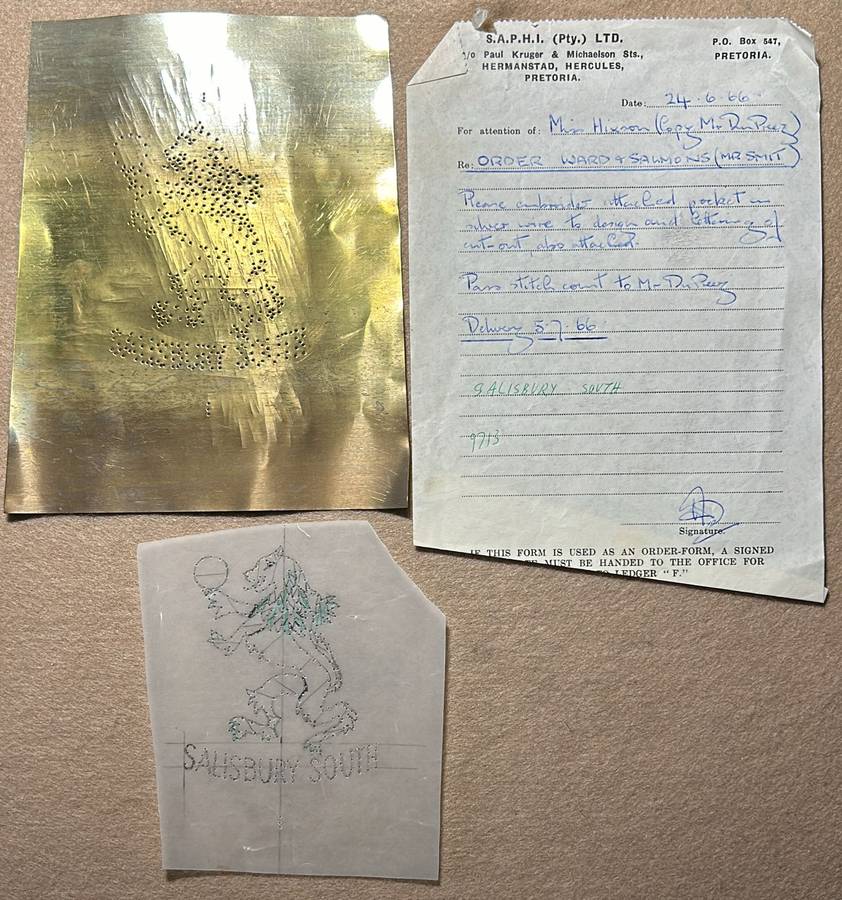 S.A.P.H.I. (Pty.) LTD.
/o Paul Kruger & Michaelson Sts.,
HERMANSTAD, HERCULES,
PRETORIA.
P.O. Box 547,
PRETORIA.
Date: 24.6.66
For attention of: Miss Hixson (Copy Mr Du Preez)
Re: ORDER WARD & SALMONS (MR SMIT)
Please embroider attached pocket in
silver wire to design and lettering of
cut-out, also attached.
Pass stitch count to Mr Du Preez
Delivery 5-7.66
SALISBURY SOUTH
9713
Signature.
IF THIS FORM IS USED AS AN ORDER-FORM, A SIGNED
MUST BE HANDED TO THE OFFICE FOR
LEDGER "F."
SALISBURY SOUTH
SALISBURY SOUTH